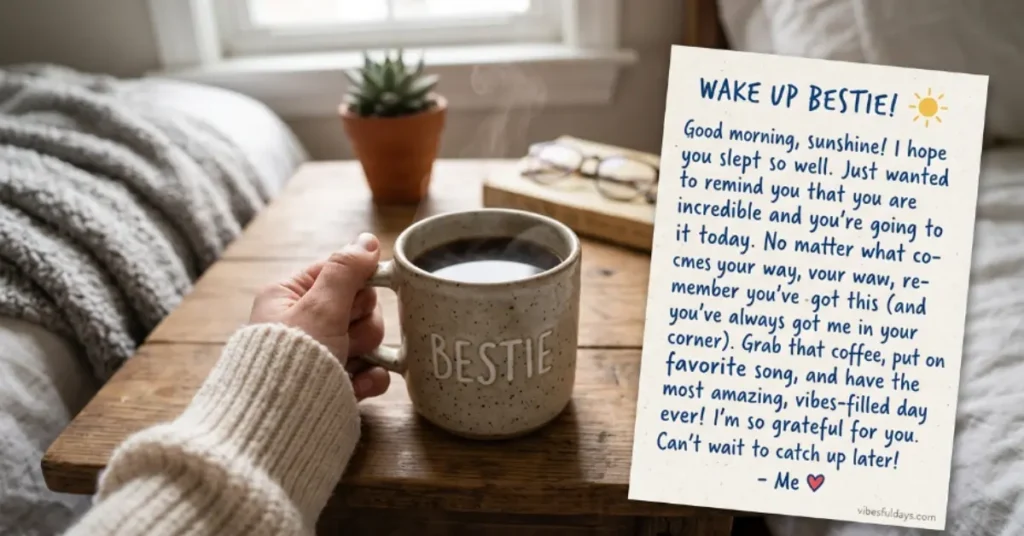 BESTIE
WAKE UP BESTIE!
Good morning, sunshine! I hope
you slept so well. Just wanted
to remind you that you are
incredible and you're going to
it today. No matter what co-
cmes your way, vour waw, re-
member you've got this (and
you've always got me in your
corner). Grab that coffee, put on
favorite song, and have the
most amazing, vibes-filled day
ever! I'm so grateful for you.
Can't wait to catch up later!
- Me
vibesfuldays.com